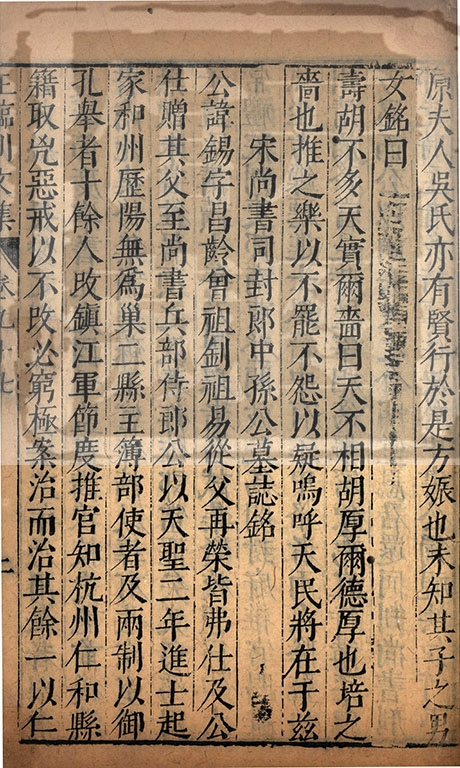 原夫人吳氏亦有賢行於是方娠也未知其子之男
女銘曰
壽胡不多天實爾嗇曰天不相胡厚爾德厚也培之
嗇也推之樂以不罷不怨以疑嗚呼天民將在于兹
宋尚書司封郎中孫公墓誌銘
公諱錫字昌齡曾祖釗祖易從父再榮皆弗仕及公
仕贈其父至尚書兵部侍郎公以天聖二年進士起
家和州歷陽無爲巢二縣主簿部使者及兩制以御
孔舉者十餘人改鎮江軍節度推官知杭州仁和縣
籍取兇惡戒以不改必窮極案治而治其餘一以仁
王臨川文集 卷九十七